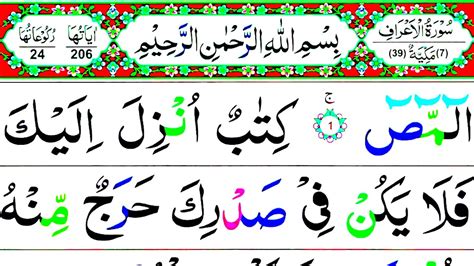 سُوْرَةُ الْاَعْرَافِ
(7) مَكِّيَّةٌ (39)
بِسْمِ اللّٰهِ الرَّحْمٰنِ الرَّحِيْمِ
اٰيَاتُهَا 206
رُكُوْعَاتُهَا 24
الٓمّٓصٓ ۚ ﴿1﴾ كِتٰبٌ اُنْزِلَ اِلَيْكَ
فَلَا يَكُنْ فِيْ صَدْرِكَ حَرَجٌ مِّنْهُ